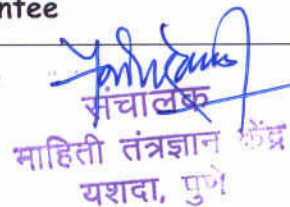 ntee
संचालक
माहिती तंत्रज्ञान केंद्र
यशदा, पुणे